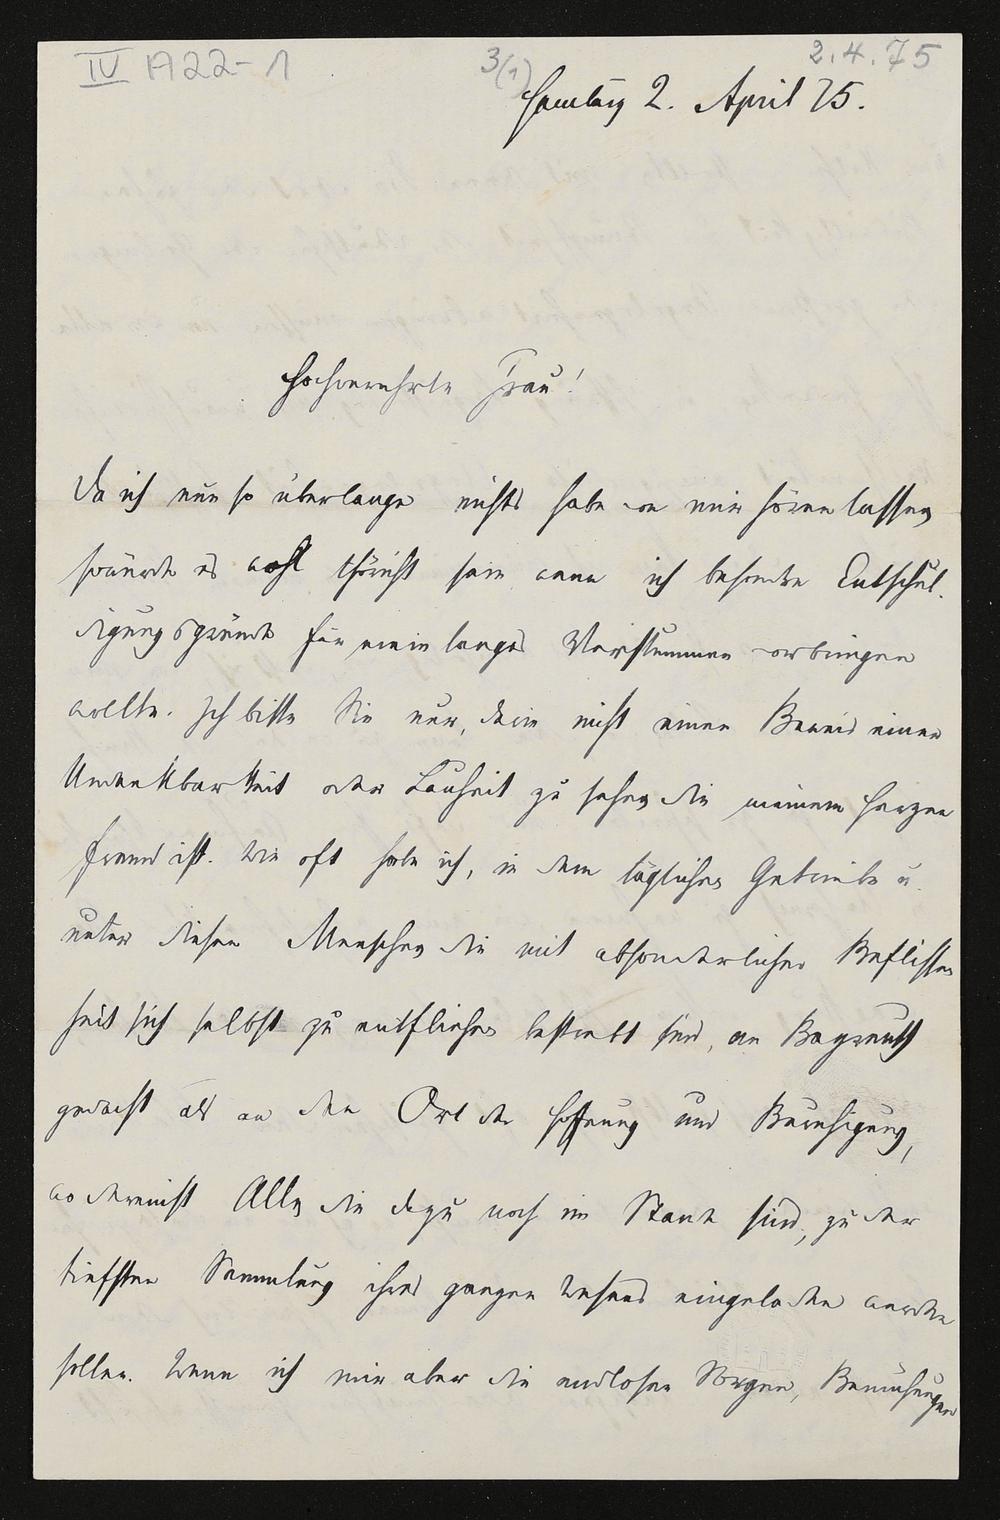 IV A22-1
3(1)
2.4.75
Hamburg 2. April 75.
Hochverehrte Frau!
Da ich nun so überlange nichts habe von mir hören lassen
würde es wohl thöricht sein wenn ich besondre Entschul-
digungsgründe für mein langes Verstummen vorbringen
wollte. Ich bitte Sie nur, darin nicht einen Beweis einer
Undankbarkeit oder Lauheit zu sehen die meinem Herzen
fremd ist. Wie oft habe ich, in dem täglichen Getreibe u.
unter diesen Menschen die mit absonderlicher Beflissen
heit sich selbst zu entfliehen bestrebt sind, an Bayreuth
gedacht als an den Ort der Hoffnung und Beruhigung,
wo dereinst Alle, die dazu noch im Stande sind, zu der
tiefsten Sammlung ihres ganzen Wesens eingeladen werden
sollen. Wenn ich mir aber die endlosen Sorgen, Bemühungen